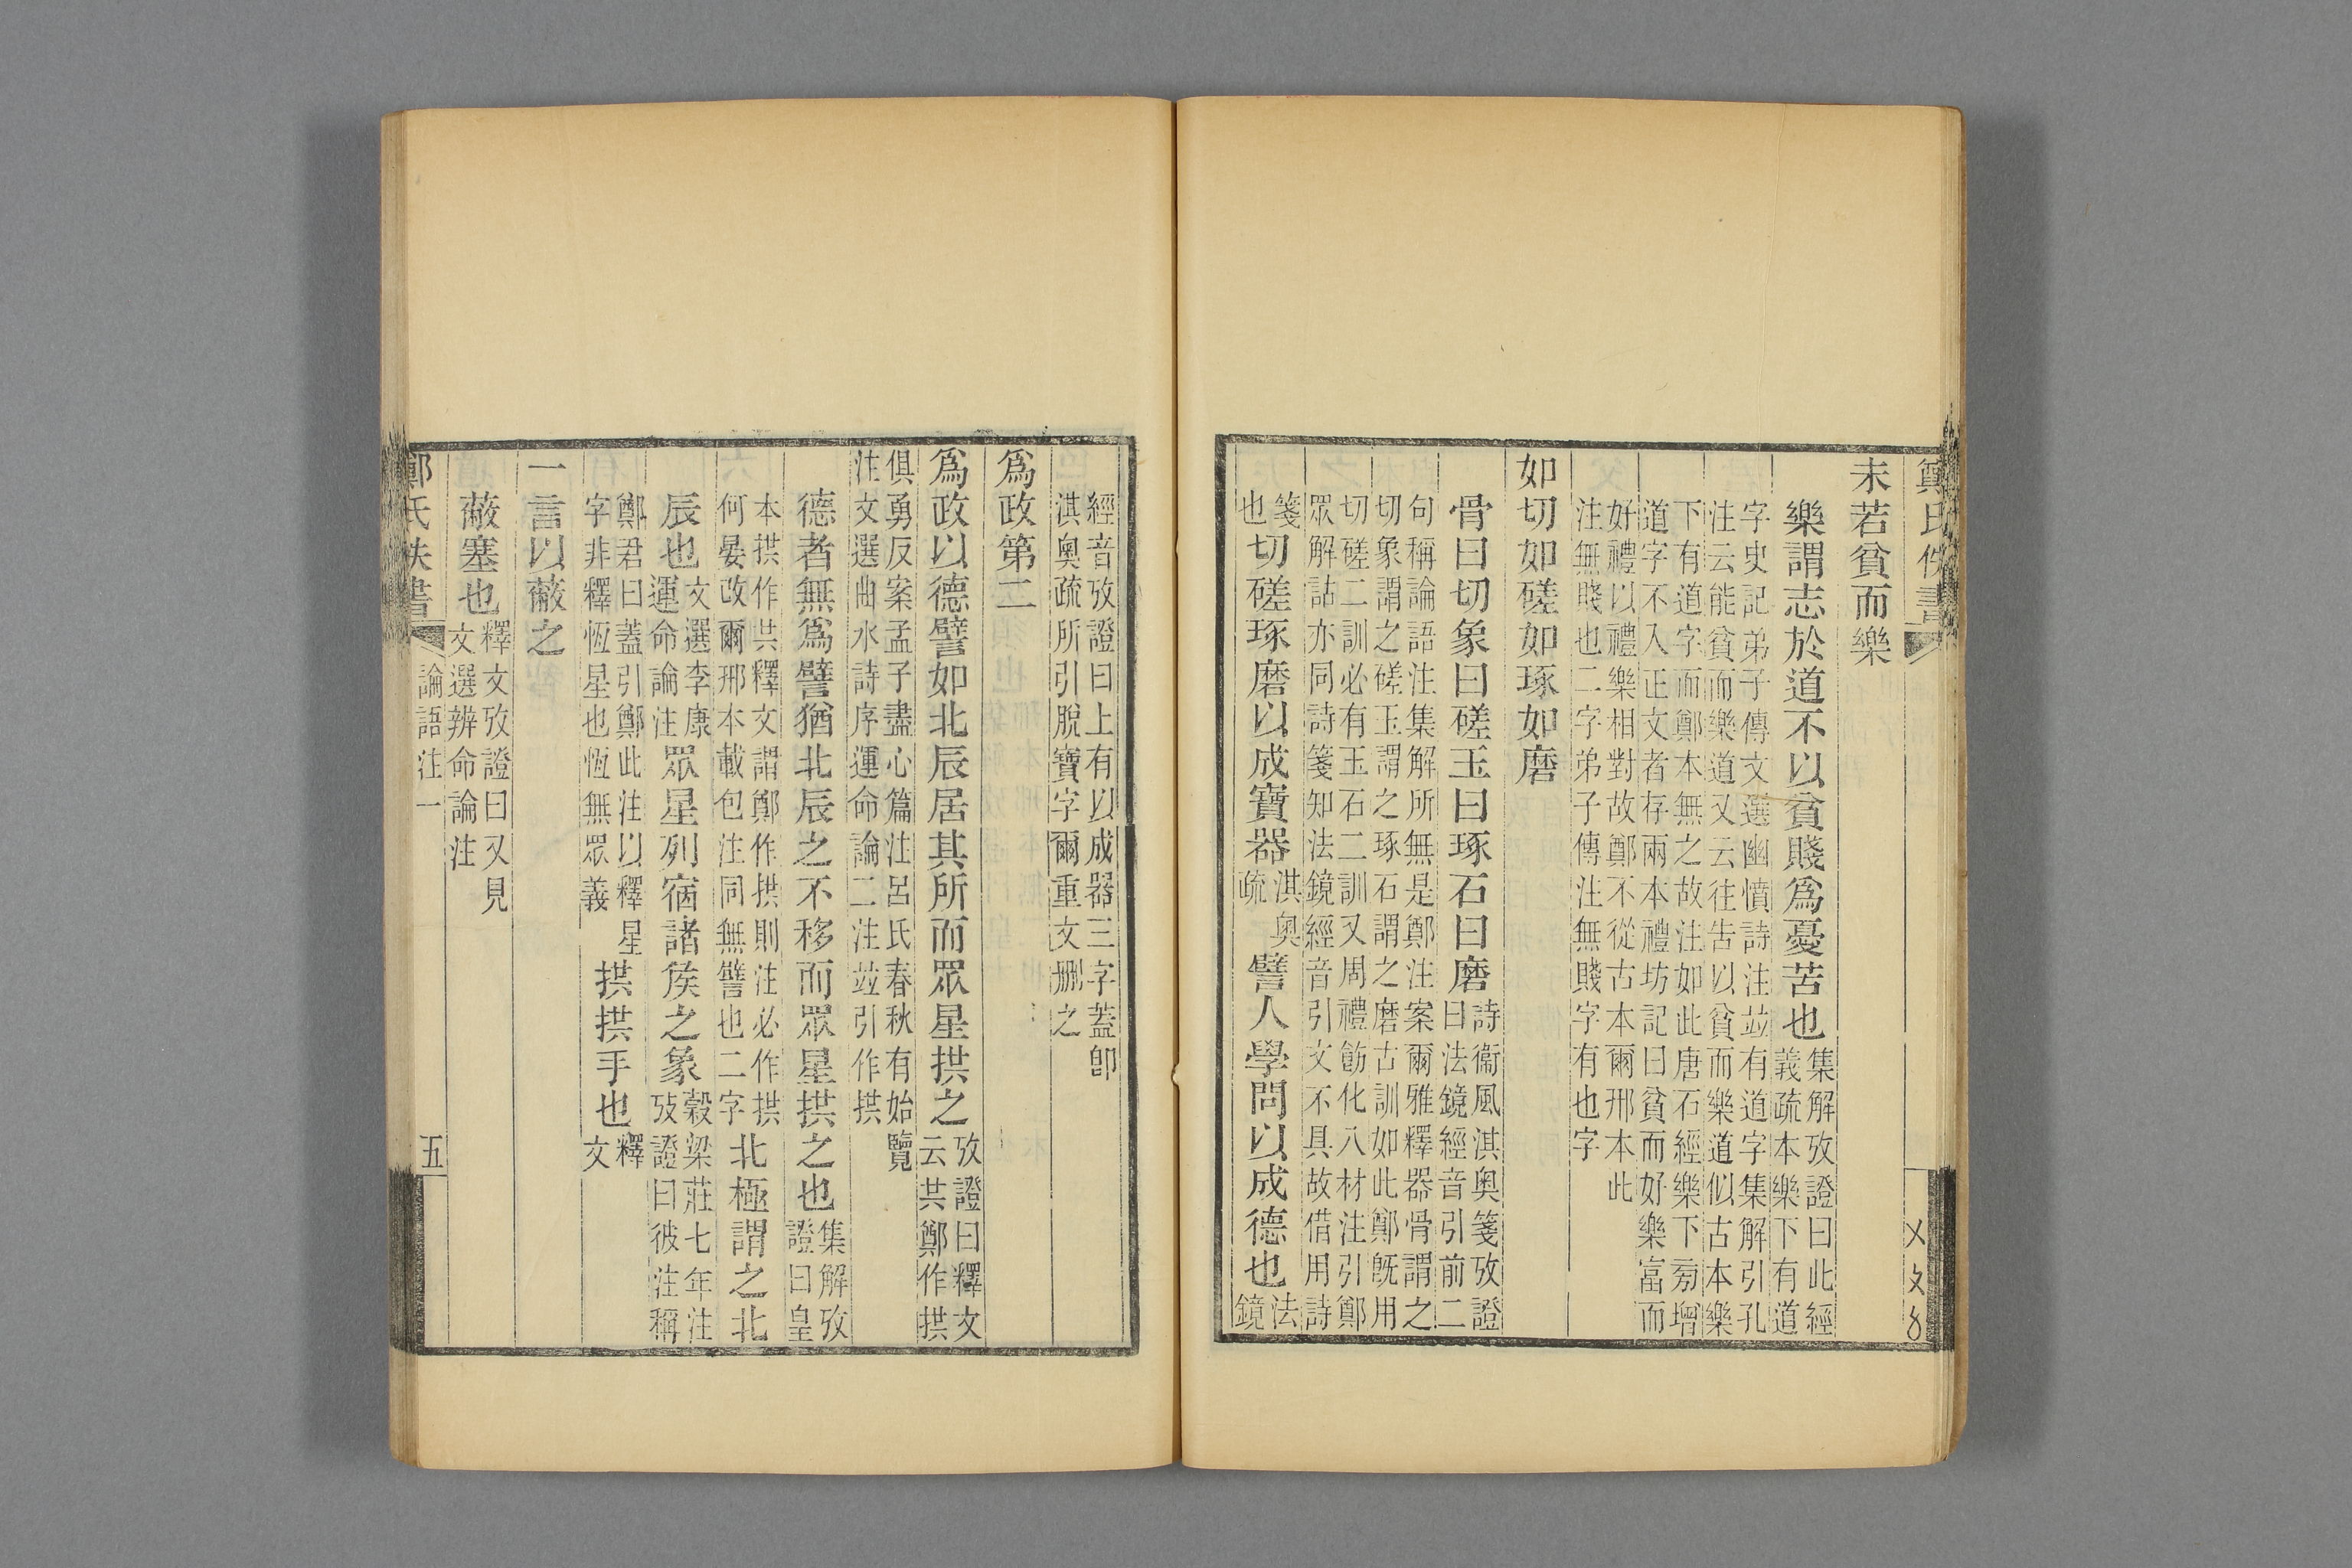 未若貧而樂
樂謂志於道不以貧賤爲憂苦也
集解攷證曰此經
義疏本樂下有道
字史記弟子傳文選幽憤詩注竝有道字集解引孔
注云能貧而樂道又云往告以貧而樂道似古本樂
下有道字而鄭本無之故注如此唐石經樂下旁增
道字不入正文者存兩本禮坊記曰貧而好樂富而
好禮以禮樂相對故鄭不從古本爾邢本此
注無賤也二字弟子傳注無賤字有也字
如切如磋如琢如磨
骨曰切象曰磋玉曰琢石曰磨
詩衞風淇奧箋攷證
曰法鏡經音引前二
句稱論語注集解所無是鄭注案爾雅釋器骨謂之
切象謂之磋玉謂之琢石謂之磨古訓如此鄭旣用
切磋二訓必有玉石二訓又周禮飭化八材注引鄭
眾解詁亦同詩箋知法鏡經音引文不具故借用詩
箋
也
切磋琢磨以成寶器
淇奧
疏
譬人學問以成德也
法
鏡
經音攷證曰上有以成器三字蓋卽
淇奧疏所引脫寶字爾重文刪之
爲政第二
爲政以德譬如北辰居其所而眾星拱之
攷證曰釋文
云共鄭作拱
俱勇反案孟子盡心篇注呂氏春秋有始覽
注文選曲水詩序運命論二注竝引作拱
德者無爲譬猶北辰之不移而眾星拱之也
集解攷
證曰皇
本拱作共釋文謂鄭作拱則注必作拱
何晏改爾邢本載包注同無譬也二字
北極謂之北
辰也
文選李康
運命論注
眾星列宿諸矦之象
穀梁莊七年注
攷證曰彼注稱
鄭君曰蓋引鄭此注以釋星
字非釋恆星也恆無眾義
拱拱手也
釋
文
一言以蔽之
蔽塞也
釋文攷證曰又見
文選辨命論注
鄭氏佚書
論語注一
五